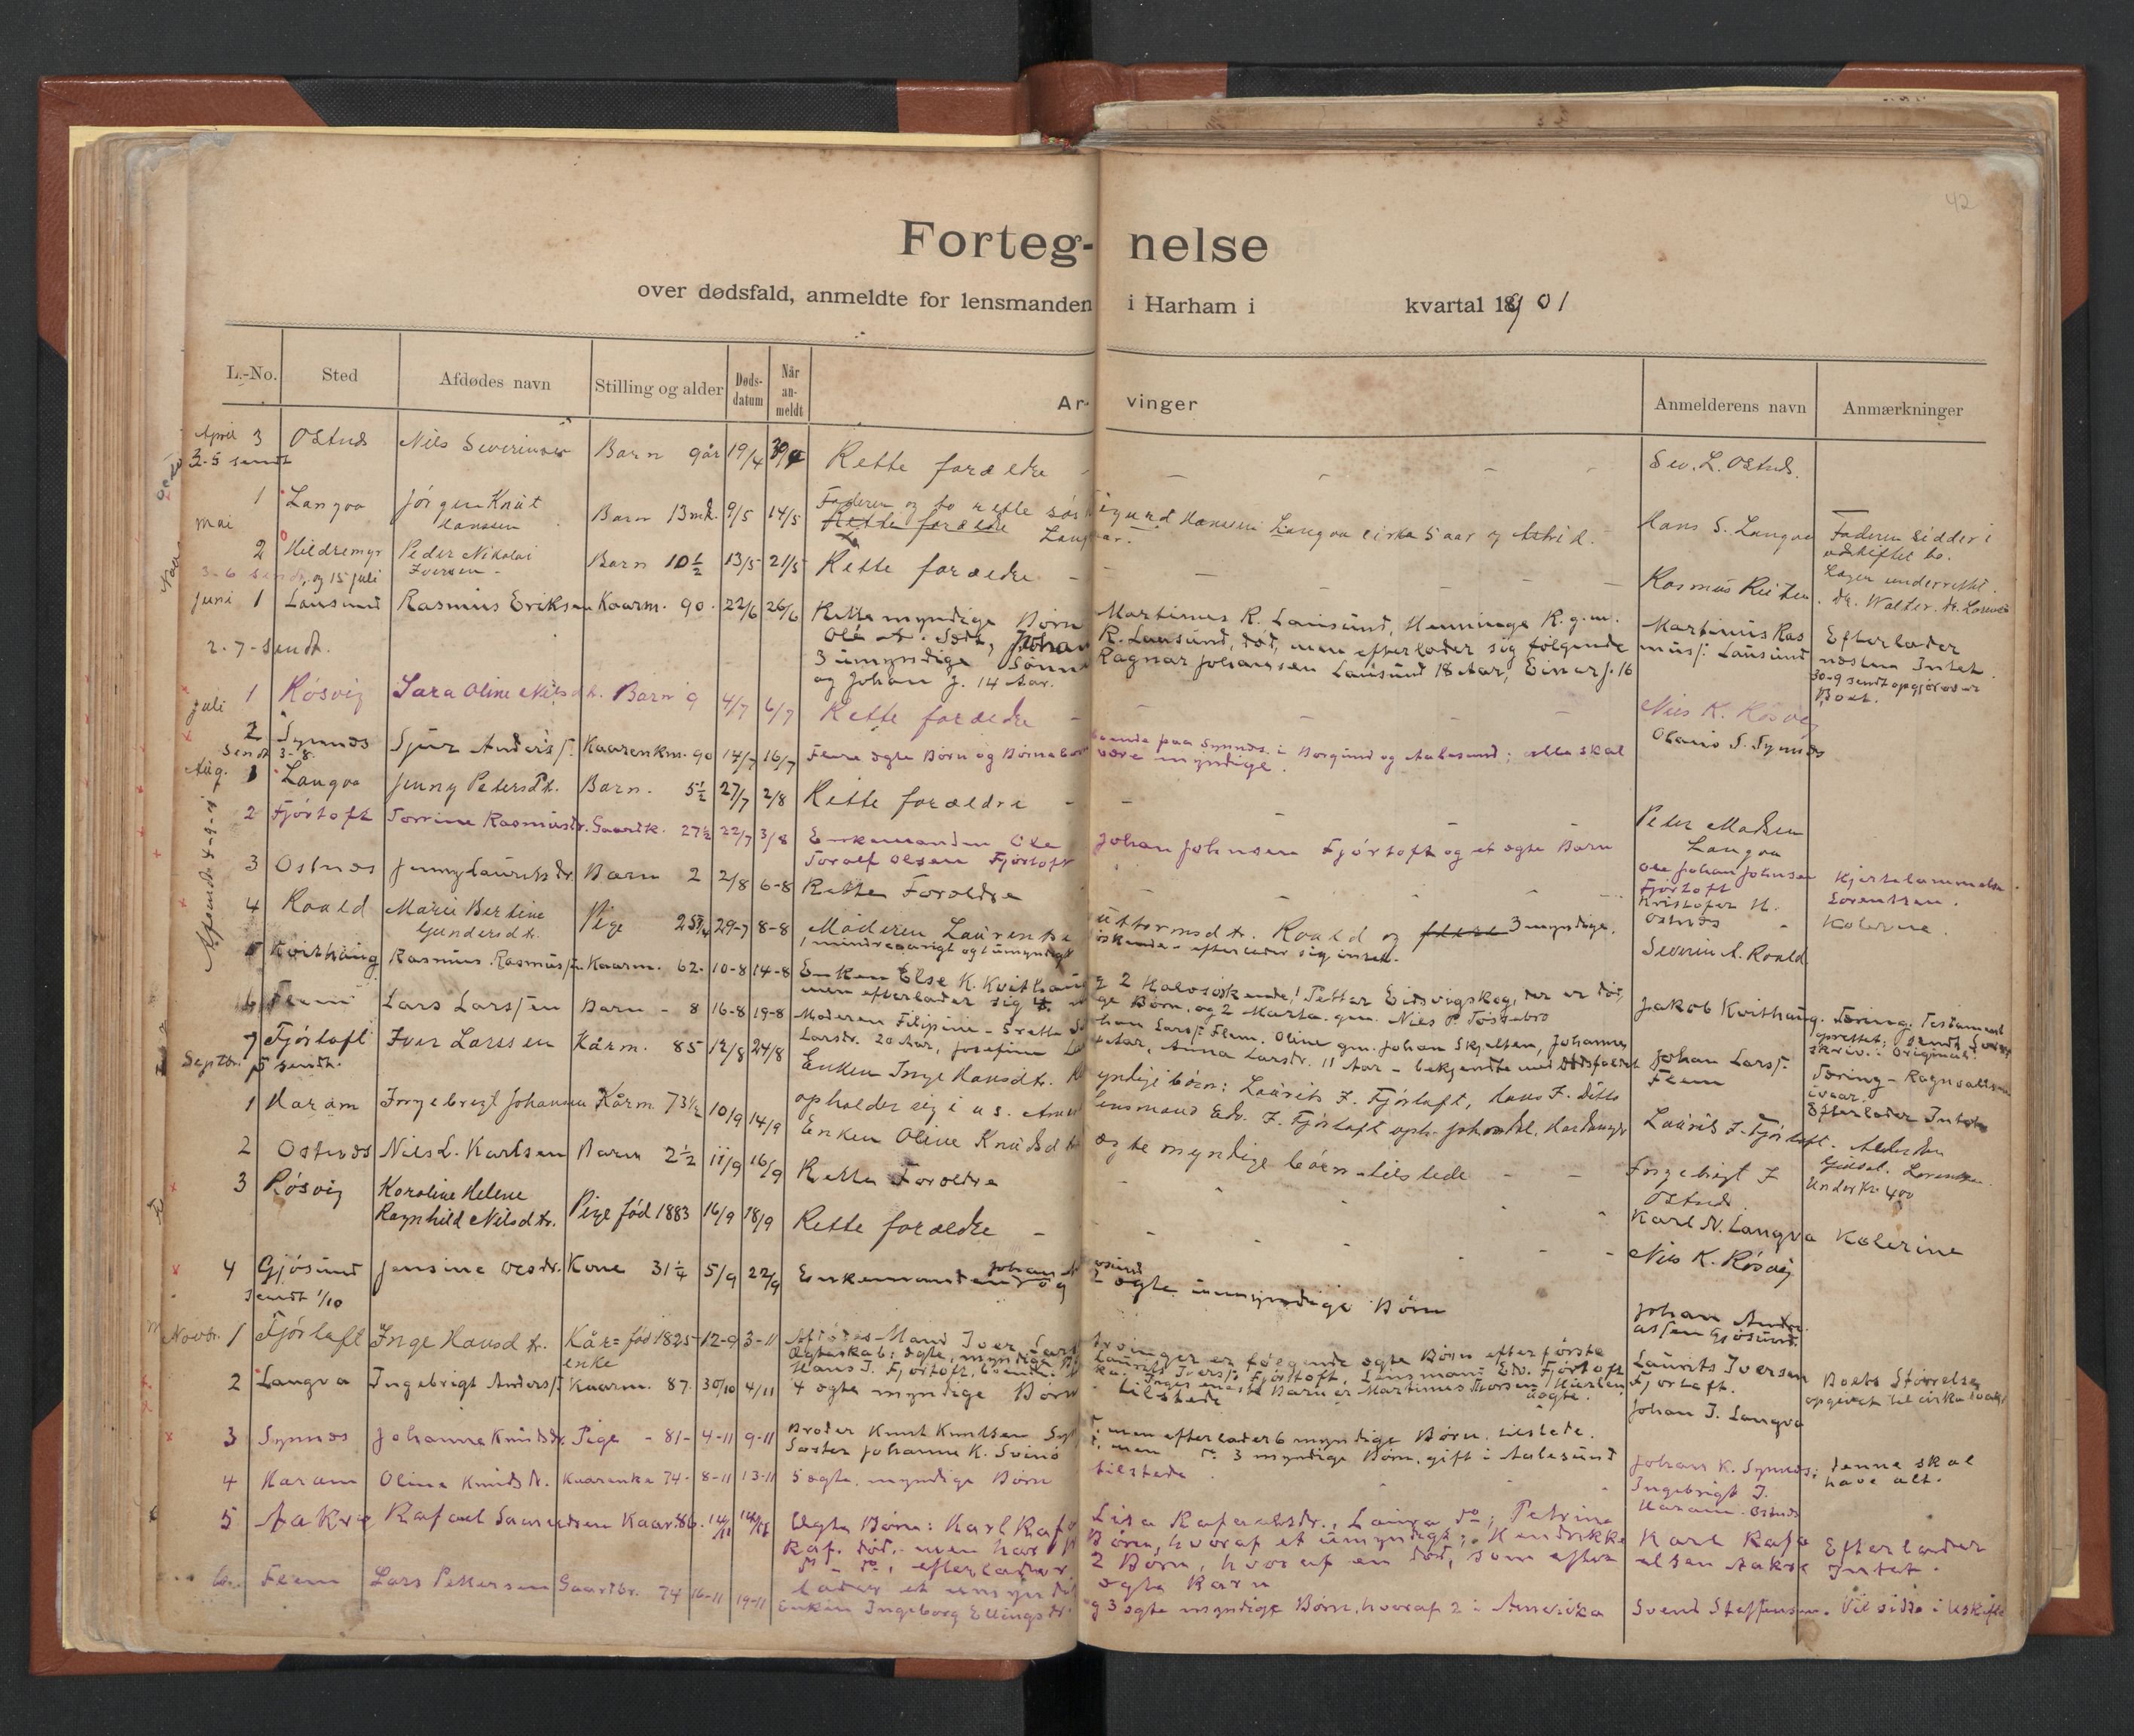 42
Forteg- nelse
over dødsfald, anmeldte for lensmanden i Harham i kvartal 1901
L.-No. Sted Afdødes navn Stilling og alder Døds-datum Når an-meldt Ar- vinger Anmelderens navn Anmærkninger
April 3 Ostnes Nils Severinsen Barn 9 år 19/4 30/4 Rette forældre - - - - Sev. L. Ostnes.
3-5 sendt
Mai 1 Langva Jørgen Knut Hanssen Barn 13 md. 9/5 14/5 Faderen og to rette søs
Rette forældre Sigurd Hansen Langva cirka 5 aar og Astrid. Hans S. Langva Faderen sidder i uskiftet bo.
2 Hildremyr Peder Nikolai Iversen - Barn 10½ 13/5 21/5 Rette forældre - - - - Rasmus Reiten. Læger underrettet. dr. Walter. dr. Lorentz
3-6 sendt, og 15 juli
Juni 1 Lausund Rasmus Eriksen Kaarm. 90. 22/6 26/6 Rette myndige Børn Martinus R. Lausund, Henninge R. g.m.
Ole A. Johan R. Lausund, død, men efterlader sig følgende Martinus Rasmuss: Lausund Efterlader næsten Intet.
2-7-sendt. 3 umyndige Sønne Ragnar Johansen Lausund 18 Aar, Einar J. 16
og Johan J. 14 Aar. 30-9 sendt opgjør over Boet.
Juli 1 Røsvig Sara Oline Nilsdt. Barn 9 4/7 6/7 Rette forældre - - - Nils K. Røsvig
2 Synnes Sjur Anderss. Kaarenkm. 90 14/7 16/7 Flere ægte Børn og Børnebørn boende paa Synnes i Borgund og Aalesund; alle skal være myndige. Olaus S. Synnes
Sendt 3-8.
Aug. 1 Langva Jenny Petersdt. Barn. 5½ 27/7 2/8 Rette forældre - - - Peter Madsen Langva
2 Fjørtoft Torrine Rasmusdr. Gaardk. 27½ 22/7 3/8 Enkemanden Ole Johan Johnsen Fjørtoft og et ægte Barn
Toralf Olsen Fjørtoft Ole Johan Johnsen Fjørtoft Hjertelammelse. Lorentzen.
3 Ostnes Jenny Lauritsdr. Barn 2 2/8 6-8 Rette Foroldre - - - Kristofer H. Ostnes - Kolerine.
4 Roald Marie Bertine Gundersdt. Pige 25¾ 29-7 8-8 Moderen Laurense Guttormsdt. Roald og 3 myndige,
1 mindreaarigt og 1 umyndigt søskende - efterlader sig intet. Severin A. Roald.
Afsendt 4-9-01
5 Kvithaug Rasmus Rasmuss. Kaarm. 62. 10-8 14-8 Enken Else K. Kvithaug og 2 Halvsøskende! Petter Eidsvigskog, der er død,
men efterlader sig 4 myndige Børn, og 2 Marta. gm. Nils P. Tossebro Jakob Kvithaug. Tæring. Testament oprettet, sendt Sorenskriv. Original
6 Flem Lars Larssen Barn - 8 16-8 19-8 Moderen Filipine - 5 rette Johan Larss: Flem. Oline gm. Johan Skjelten, Johannes
Larsdr. 20 Aar, Josefine Anna Larsdr. 11 Aar - bekjendte med Dødsfaldet Johan Larss. Flem Tæring - Ragnvald
7 Fjørtoft Iver Larssen Kårm. 85 12/8 24/8 Enken Inge Hansdt. Myndige børn: Laurits I. Fjørtoft, Hans I. Ditto
opholder sig i U.S. Amer lensmand Edv. I. Fjørtoft oph. Hardanger Laurits I. Fjørtoft. Efterlader Intet
Septbr. 5 sendt.
1 Haram Ingebregt Johannes Kårm 73½ 10/9 14/9 Enken Oline Knudsdt ægte myndige børn tilstede - - Ingebrigt I. Ostnes Under Kr 400
2 Ostnes Nils L. Karlsen Barn 2½ 11/9 16/9 Rette Foroldre - - - Karl N. Langva Kolerine
3 Røsvig Karoline Helene Ragnhild Nilsdtr. Pige fød 1883 16/9 18/9 Rette forældre - - - Nils K. Røsvig
4 Gjøsund Jensine Olsdr. Kone 31¼ 5/9 22/9 Enkemanden Johan A. Gjøsund og 2 ægte umyndige Børn Johan Anderassen Gjøsund.
Sendt 1/10
Novbr. 1 Fjørtoft Inge Hansdtr. Kår= enke fød 1825 12-9 3-11 Afdødes Mand Iver Lars Arvinger er følgende ægte Børn efter første
Ægteskab: ægte, myndige Laurits Iverss. Fjørtoft, Lensmand Edv. Fjørtoft
Hans I. Fjørtoft, boende Inges eneste Barn er Martinus uægte. Laurits Iversen Fjørtoft. Boets Størrelse opgivet til cirka
2 Langva Ingebrigt Anderss. Kaarm. 87. 30/10 4/11 4 ægte myndige Børn tilstede Johan I. Langva
3 Synnes Johanne Knudsdr. Pige - 81 - 4-11 9-11 Broder Knut Knutsen død, men efterlader 6 myndige Børn, tilstede.
Søster Johanne K. Svinø d. men do 3 myndige Børn, gift i Aalesund Johan K. Synnes; denne skal have alt.
4 Haram Oline Knudsdr. Kaarenke 74 - 8-11 13-11 5 ægte, myndige Børn tilstede Ingebrigt I. Haram. Ostnes
5 Aakre Rafael Saamundsen Kaar 86. 14/11 14/11 Ægte Børn: Karl Rafa Lisa Rafaelsdr., Laura do; Petrine
Raf. død, men har Børn, hvoraf et umyndigt; Hendrikke Karl Rafaelsen Aakre Efterlader Intet.
do - do, efterlader 2 Børn, hvoraf en død, som efter
lader et umyndigt ægte Barn
6 Flem Lars Pettersen Gaardbr. 74 16-11 19-11 Enken Ingeborg Ellingsdr. og 3 ægte myndige Børn, hvoraf 2 i Amerika Svend Steffensen. Vil sidde i Uskifte